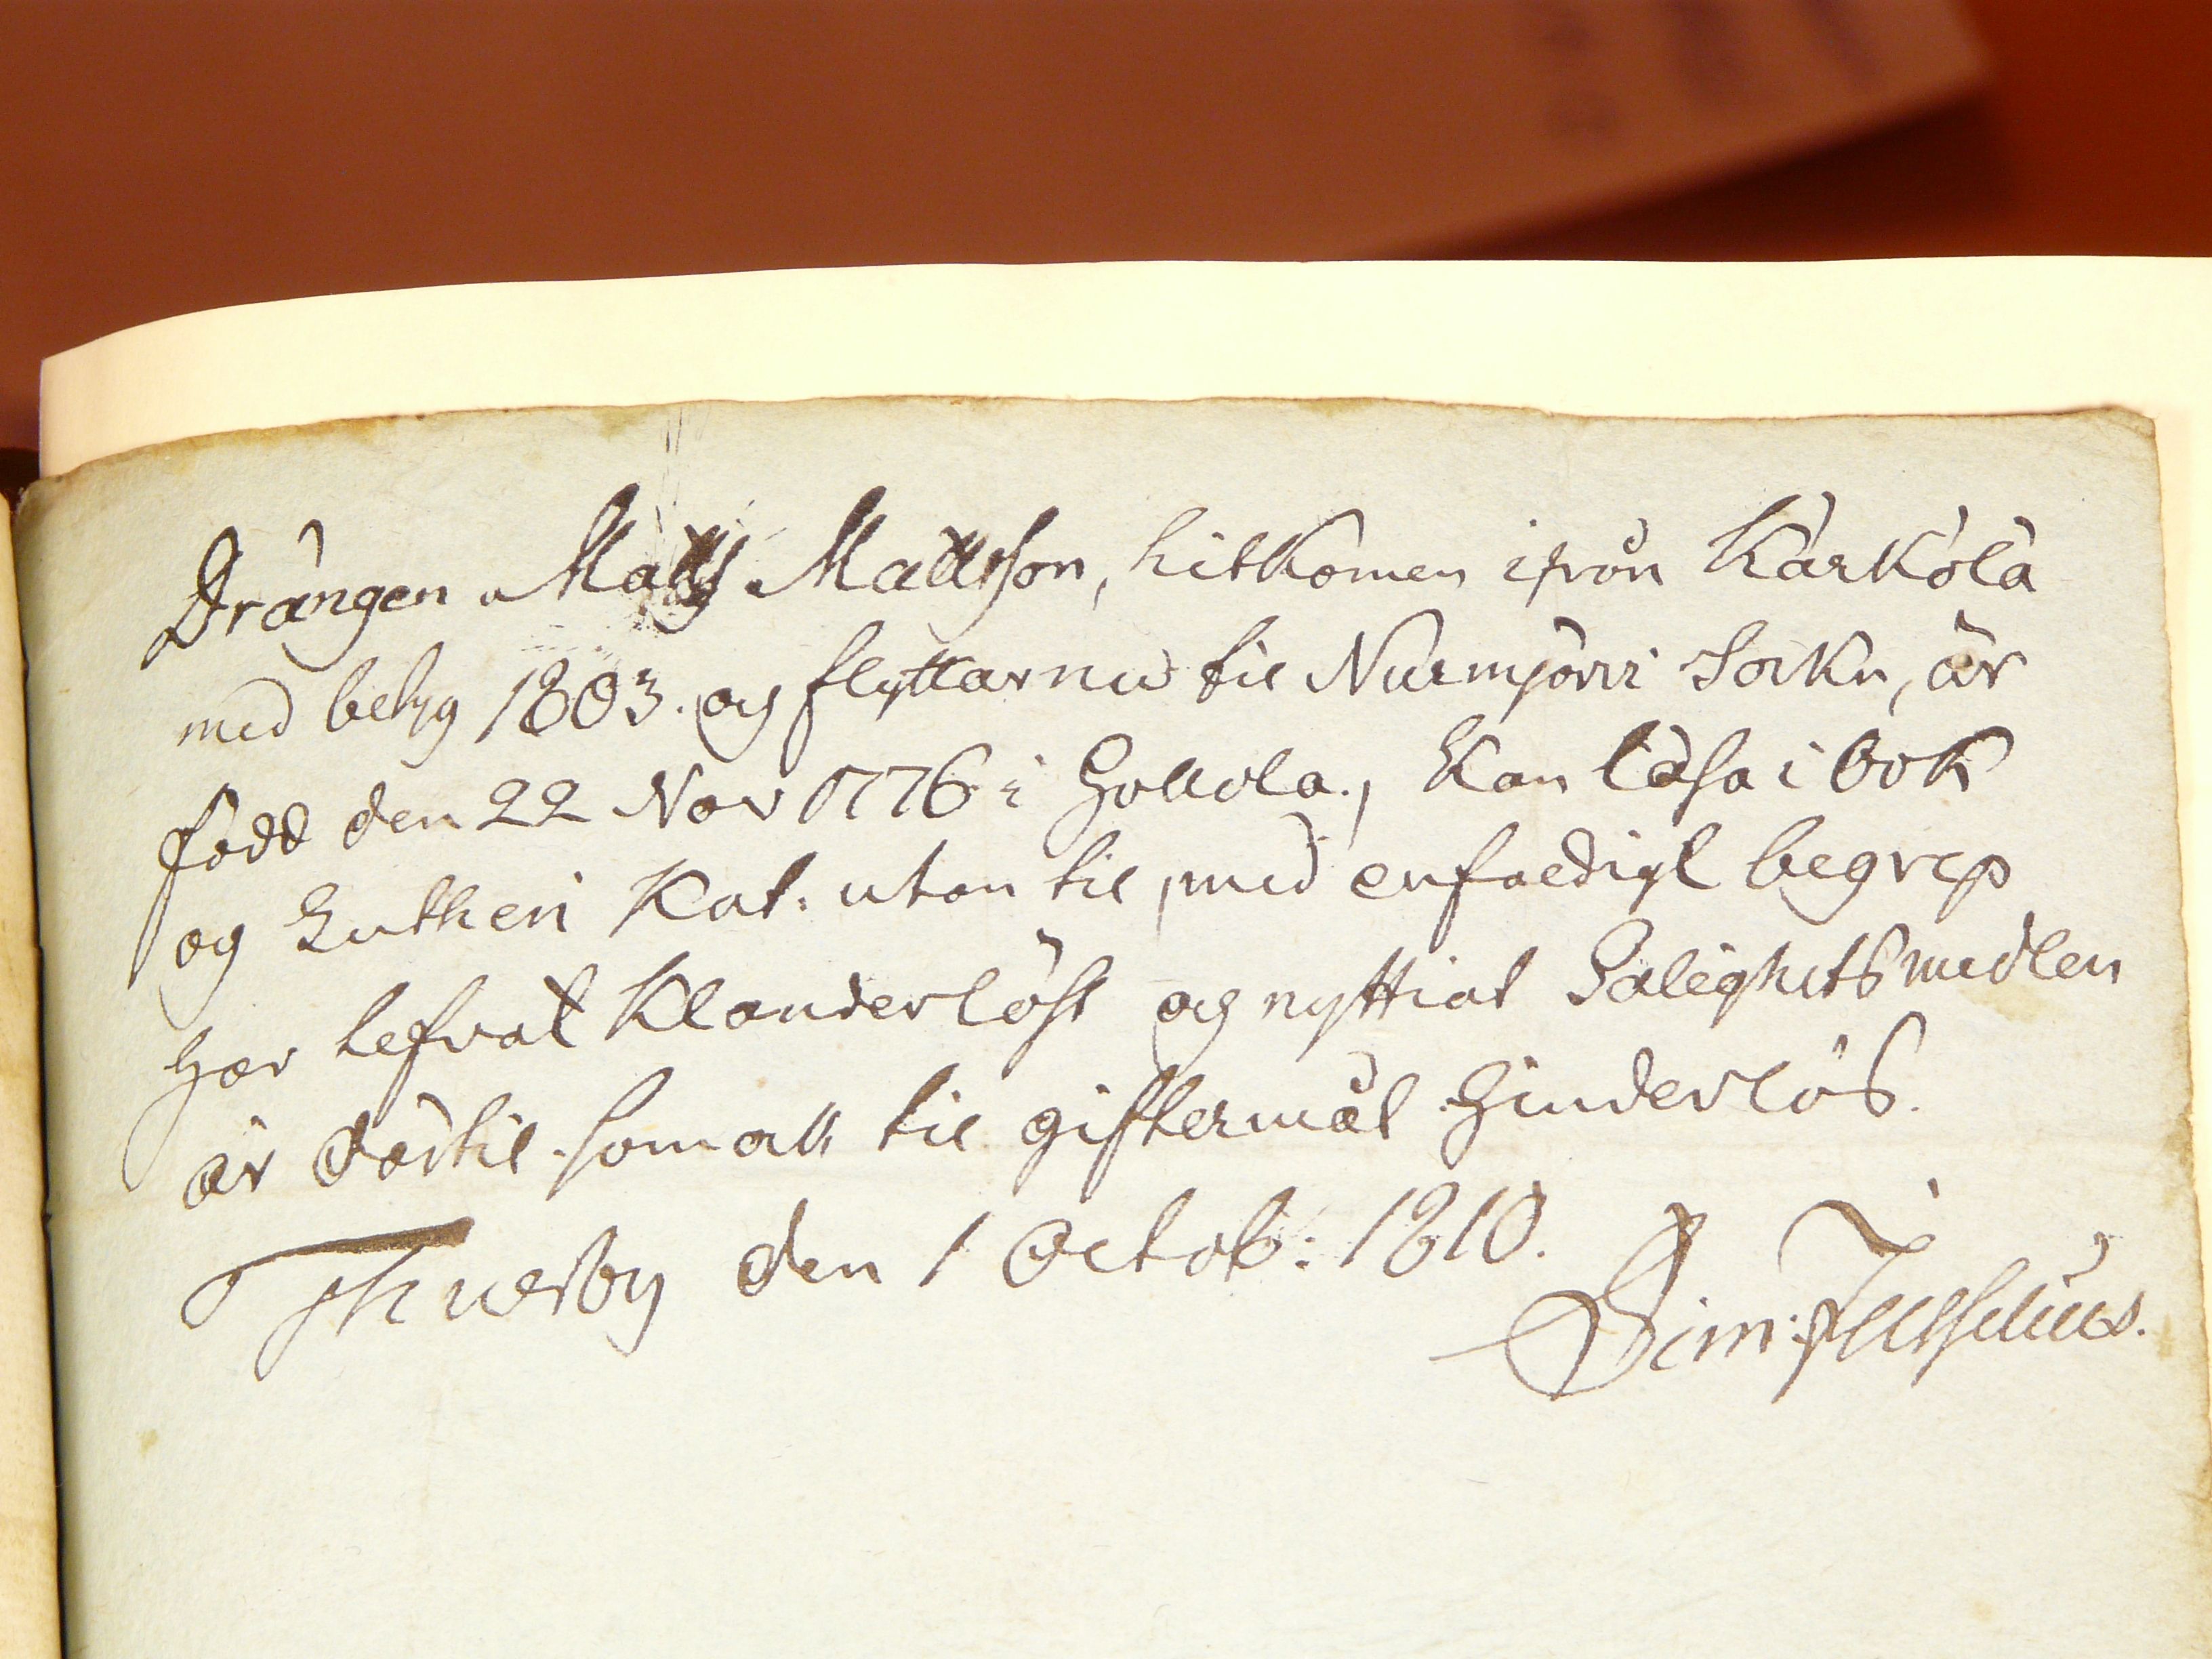 Drängen Matts Mattsson, hitkomen ifrån Kärkölä
med betyg 1803. og flyttar nu til Nurmjärvi Sokn, är
född den 22 Nov 1776 i Hollola., Kan läsa i bok
og Lutheri Kat. utan til, med enfaldigt begrep
har lefvat Klanderlöst og nyttiat Salighetsmedlen
är därtil som ock til giftermål hinderlös.
den 1 Octob: 1810.
Sim: